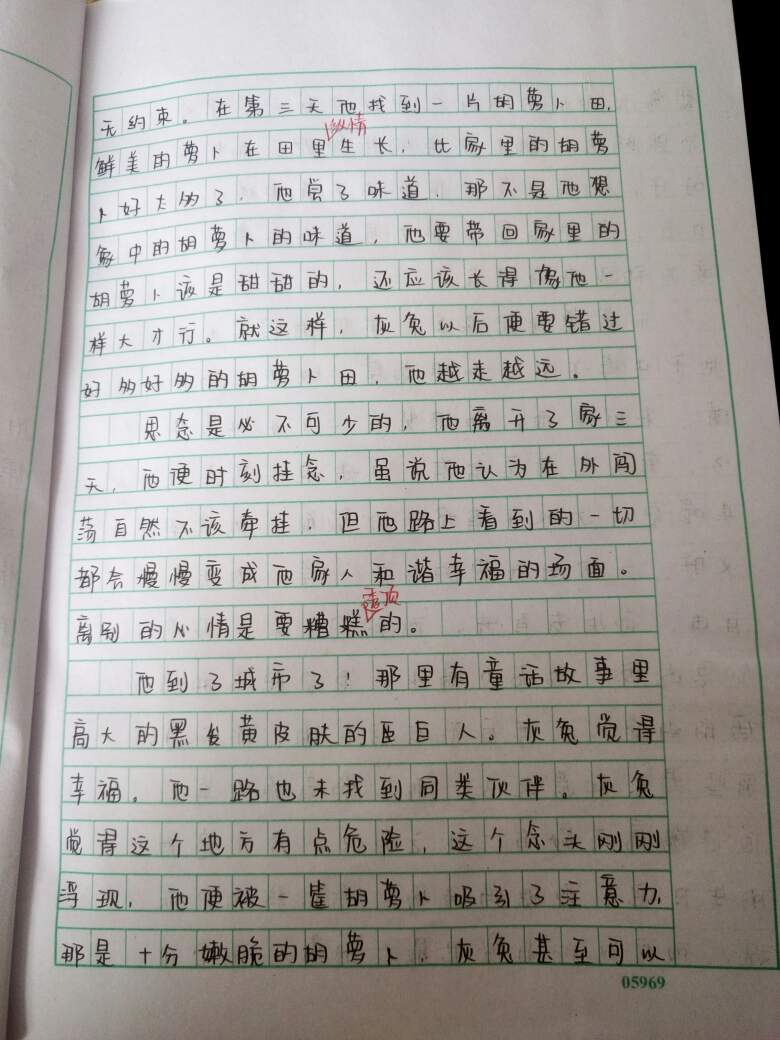 无约束。在第三天他找到一片胡萝卜田,
纵情
鲜美的萝卜在田里生长,比家里的胡萝
卜好太多了,他尝了味道,那不是他想
象中的胡萝卜的味道,他要带回家里的
胡萝卜该是甜甜的,还应该长得像他一
样大才行。就这样,灰兔以后便要错过
好多好多的胡萝卜田,他越走越远。
思念是必不可少的,他离开了家三
天,他便时刻挂念,虽说他认为在外闯
荡自然不该牵挂,但他路上看到的一切
都会慢慢变成他家人和谐幸福的场面。
透顶
离别的心情是要糟糕的。
他到了城市了!那里有童话故事里
高大的黑发黄皮肤的巨人。灰兔觉得
幸福,他一路也未找到同类伙伴。灰兔
觉得这个地方有点危险,这个念头刚刚
浮现,他便被一筐胡萝卜吸引了注意力,
那是十分嫩脆的胡萝卜,灰兔甚至可以
05969